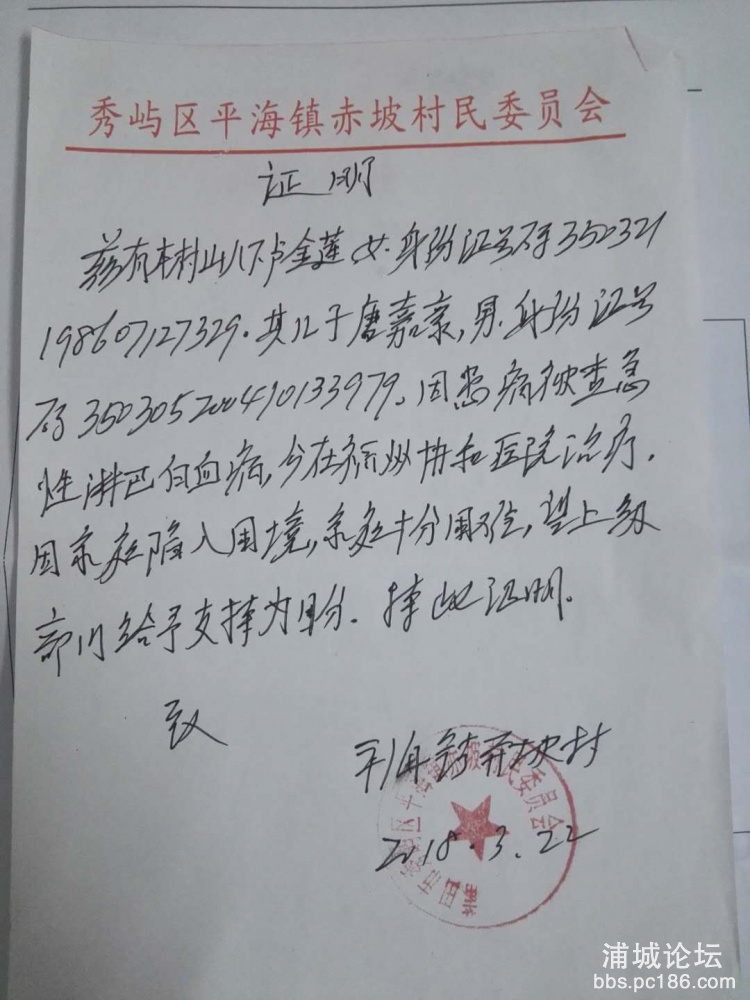 秀屿区平海镇赤坡村民委员会
证明
兹有本村山下卢金莲,女.身份证号码350321
198607127329.其儿子唐嘉豪,男.身份证号
码350305200410133979.因患病被查急
性淋巴白血病,今在福州协和医院治疗.
因家庭陷入困境,家庭十分困难,望上级
部门给予支持为盼.特此证明.
致
平海镇赤坡村
2018.3.22
村民委员会
浦城论坛
bbs.pc186.com